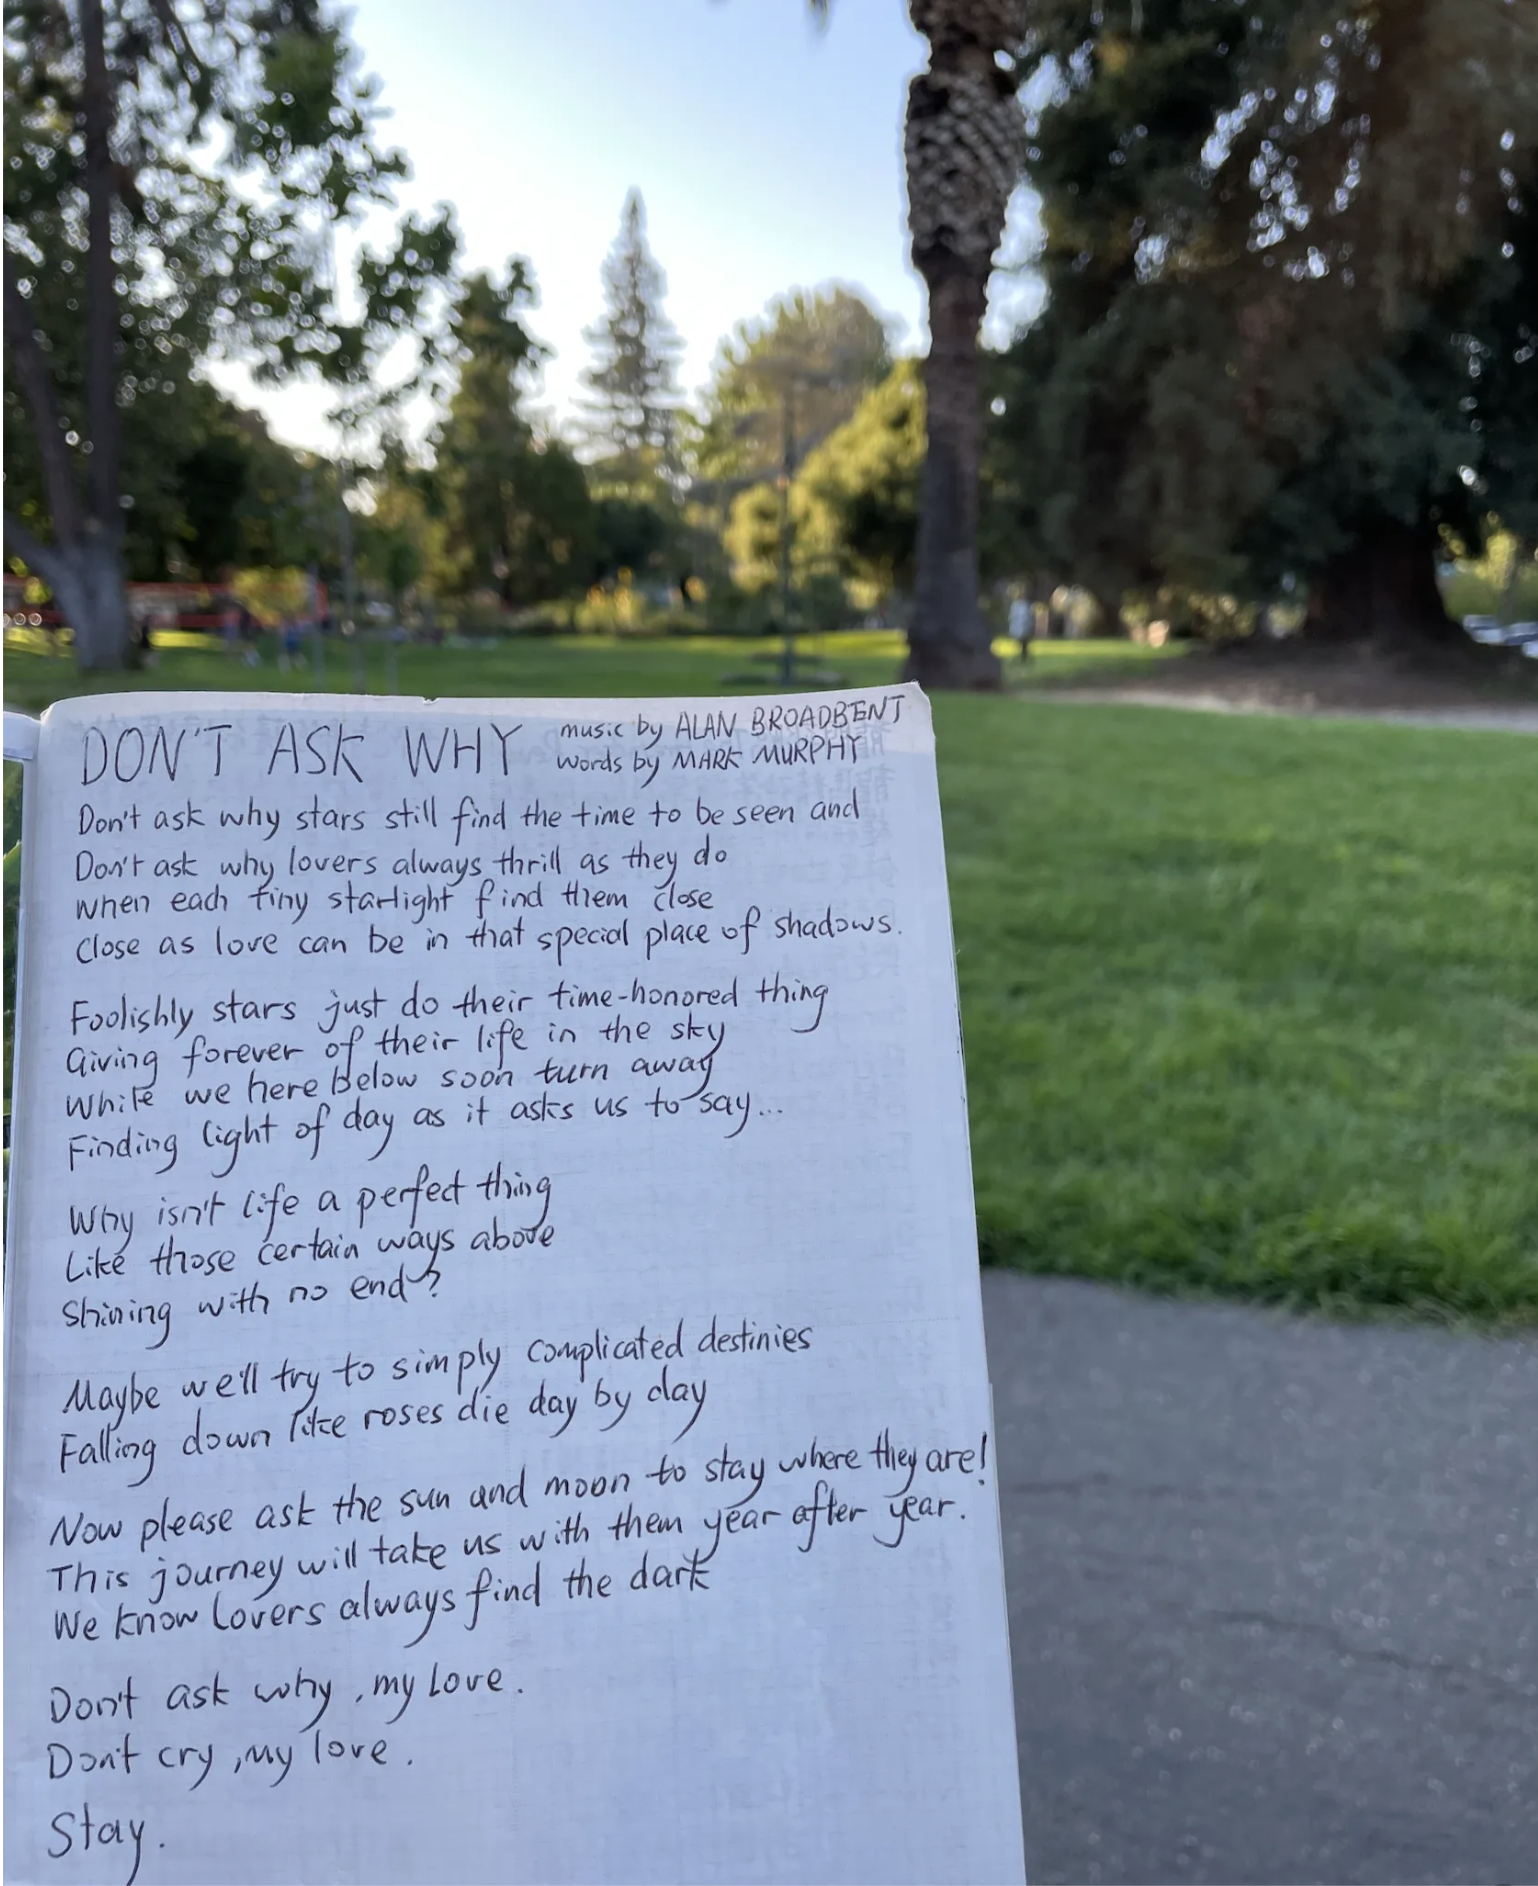 DON'T ASK WHY
music by ALAN BROADBENT
words by MARK MURPHY
Don't ask why stars still find the time to be seen and
Don't ask why lovers always thrill as they do
when each tiny starlight find them close
close as love can be in that special place of shadows.
Foolishly stars just do their time-honored thing
Giving forever of their life in the sky
While we here below soon turn away
Finding light of day as it asks us to say...
Why isn't life a perfect thing
Like those certain ways above
Shining with no end?
Maybe we'll try to simply complicated destinies
Falling down like roses die day by day
Now please ask the sun and moon to stay where they are!
This journey will take us with them year after year.
We know lovers always find the dark
Don't ask why, my love.
Don't cry, my love.
Stay.